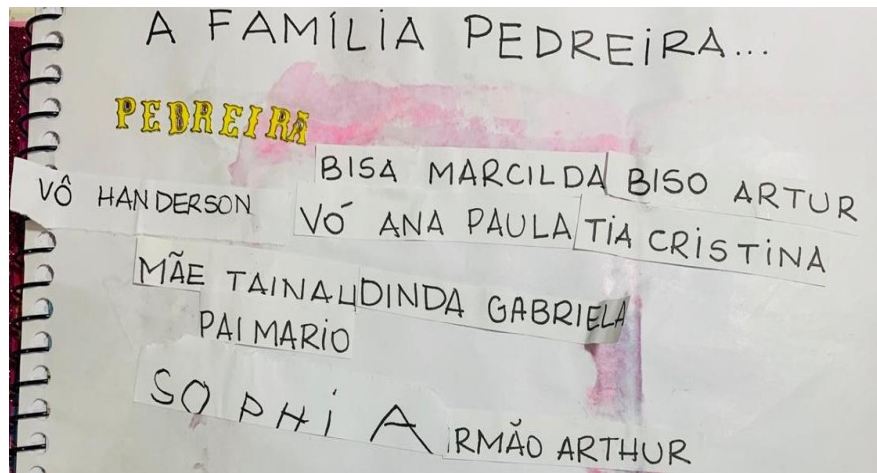 A FAMÍLIA PEDREIRA...
PEDREIRA
BISA MARCILDA BISO ARTUR
VÔ HANDERSON VÓ ANA PAULA TIA CRISTINA
MÃE TAINAH DINDA GABRIELA
PAI MARIO
SOPHIA IRMÃO ARTHUR